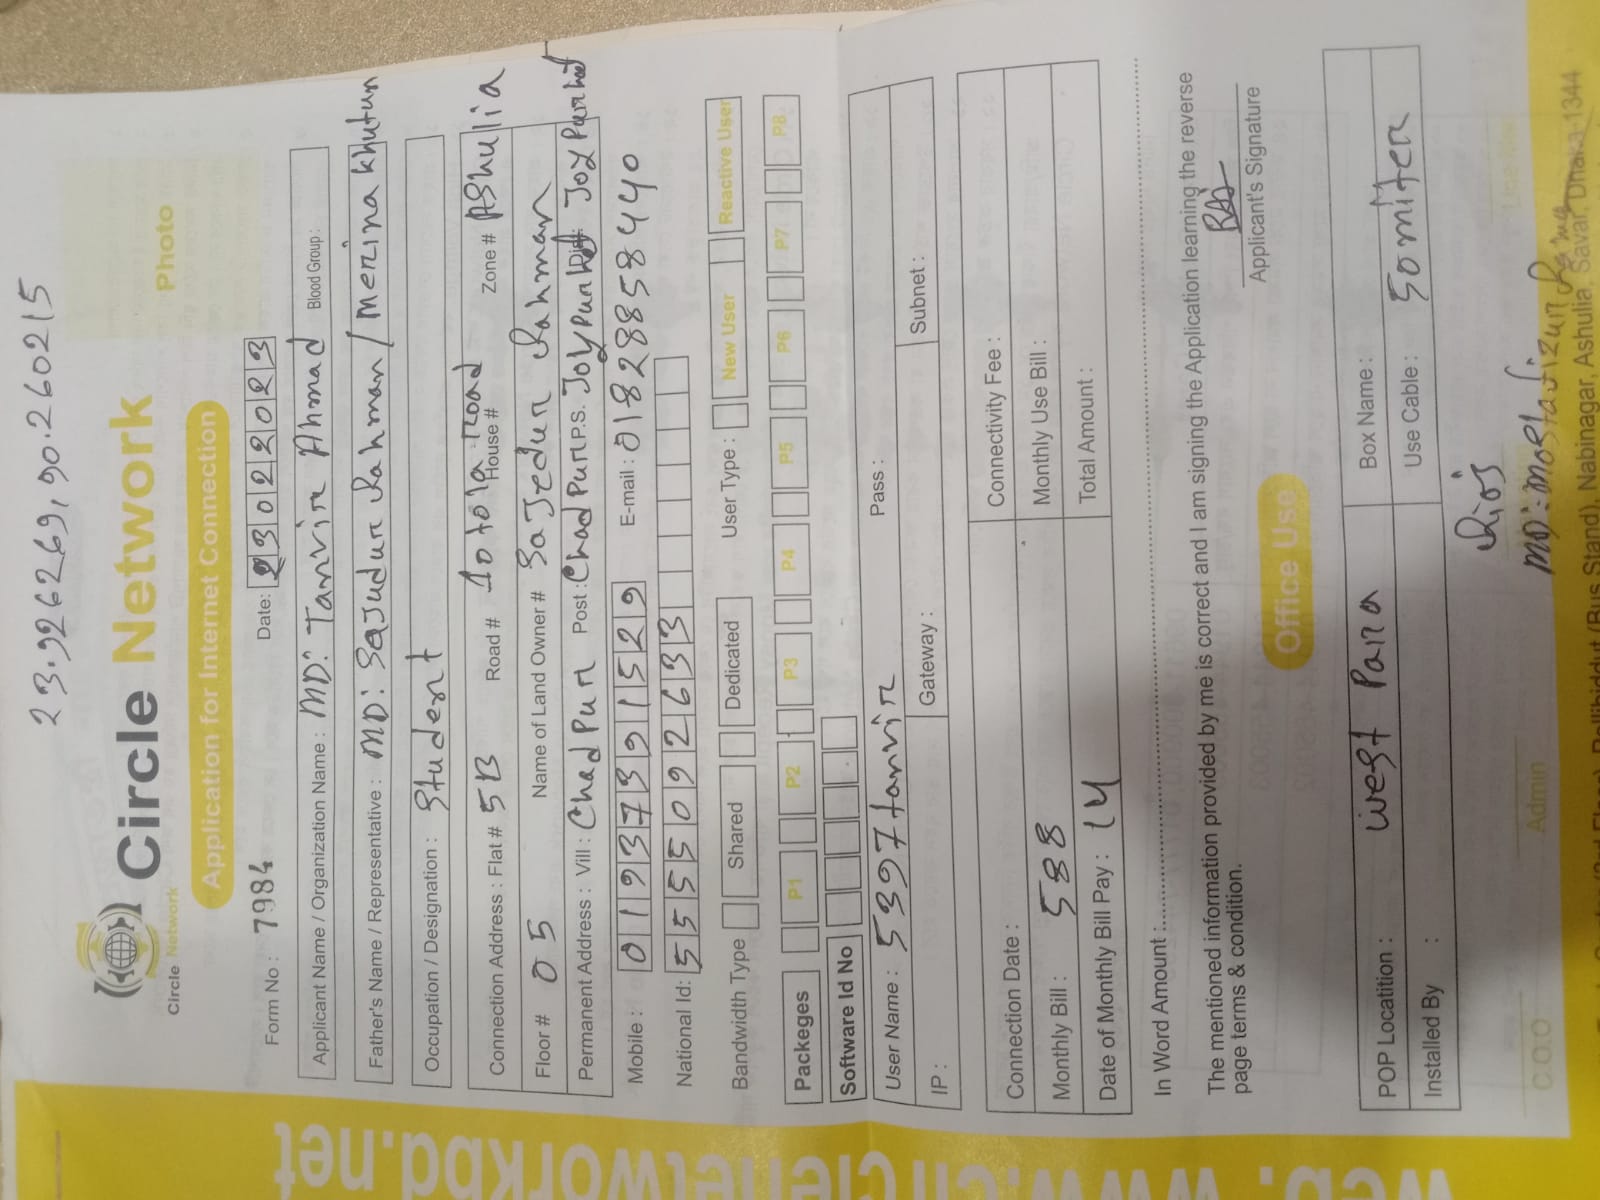 23.926269, 90.260215
Circle Network
Circle Network
Application for Internet Connection
Photo
Form No : 7984 Date: 23022023
Applicant Name / Organization Name : MD: Tanvir Ahmad Blood Group :
Father's Name / Representative : MD: Sajudur Rahman / Merina Khutun
Occupation / Designation : Student
Connection Address : Flat # 5B Road # 10 tola Road House # Zone # AShulia
Floor # 05 Name of Land Owner # Sajedur Rahman
Permanent Address : Vill : Chad Pur Post : Chad Pur P.S. Joypurhat Dist: Joy Purhat
Mobile : 01937391529 E-mail : 01828858440
National Id: 555092633
Bandwidth Type Shared Dedicated User Type : New User Reactive User
Packeges P1 P2 P3 P4 P5 P6 P7 P8
Software Id No
User Name : 5397tanvir Pass :
IP : Gateway : Subnet :
Connection Date : Connectivity Fee :
Monthly Bill : 588 Monthly Use Bill :
Date of Monthly Bill Pay : 14 Total Amount :
In Word Amount :
The mentioned information provided by me is correct and I am signing the Application learning the reverse
page terms & condition.
Applicant's Signature
Office Use
POP Locatition : West Para Box Name :
Installed By : Use Cable : Somitea
MD: Mostafizur
C.O.O Admin
(Bus Stand), Nabinagar, Ashulia, Savar, Dhaka-1344
web: www.circlenetworkbd.net